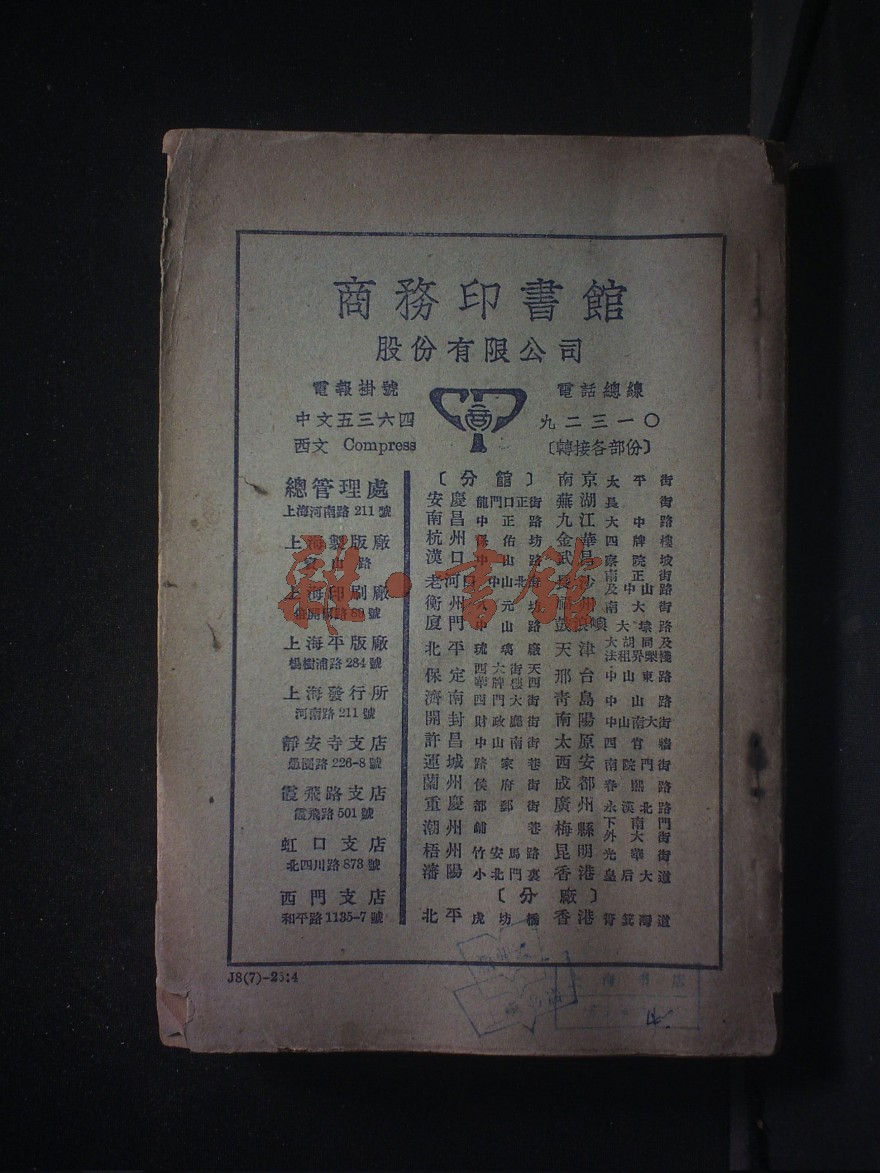 商務印書館
股份有限公司
電報掛號
中文五三六四
西文 Compress
電話總線
九二三一〇
〔轉接各部份〕
總管理處
上海河南路 211 號
上海製版廠
路
上海印刷廠
上海平版廠
楊樹浦路 284 號
上海發行所
河南路 211 號
靜安寺支店
愚園路 226-8 號
霞飛路支店
霞飛路 501 號
虹口支店
北四川路 873 號
西門支店
和平路 1135-7 號
〔分館〕
安慶 龍門口正街
南昌 中正路
杭州 保佑坊
漢口 中山路
老河口 中山北街
衡州
廈門 中山路
北平 琉璃廠
保定
濟南 西門大街
開封 財政廳街
許昌 中山南街
運城 路家巷
蘭州 侯府街
重慶 都郵街
潮州 鋪巷
梧州 竹安馬路
瀋陽 小北門裏
南京 太平街
蕪湖 長街
九江 大中路
金華 四牌樓
武昌 察院坡
長沙 南正街及中山路
福州 南大街
鼓浪嶼 大埭路
天津 大胡同及法租界梨棧
邢台 中山東路
青島 中山路
南陽 中山南大街
太原 西官牆
西安 南院門街
成都 春熙路
廣州 永漢北路
梅縣 下南門外大街
昆明 光華街
香港 皇后大道
〔分廠〕
北平 虎坊橋
香港 筲箕灣道
J8(7)-25:4